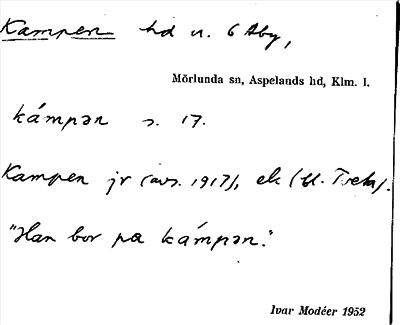 Kampen hd u. 6 Åby,
Mörlunda sn, Aspelands hd, Klm. l.
kámpən s. 17.
Kampen jr (avs. 1917), ek (bl.
"Han bor på kámpən."
Ivar Modéer 1952